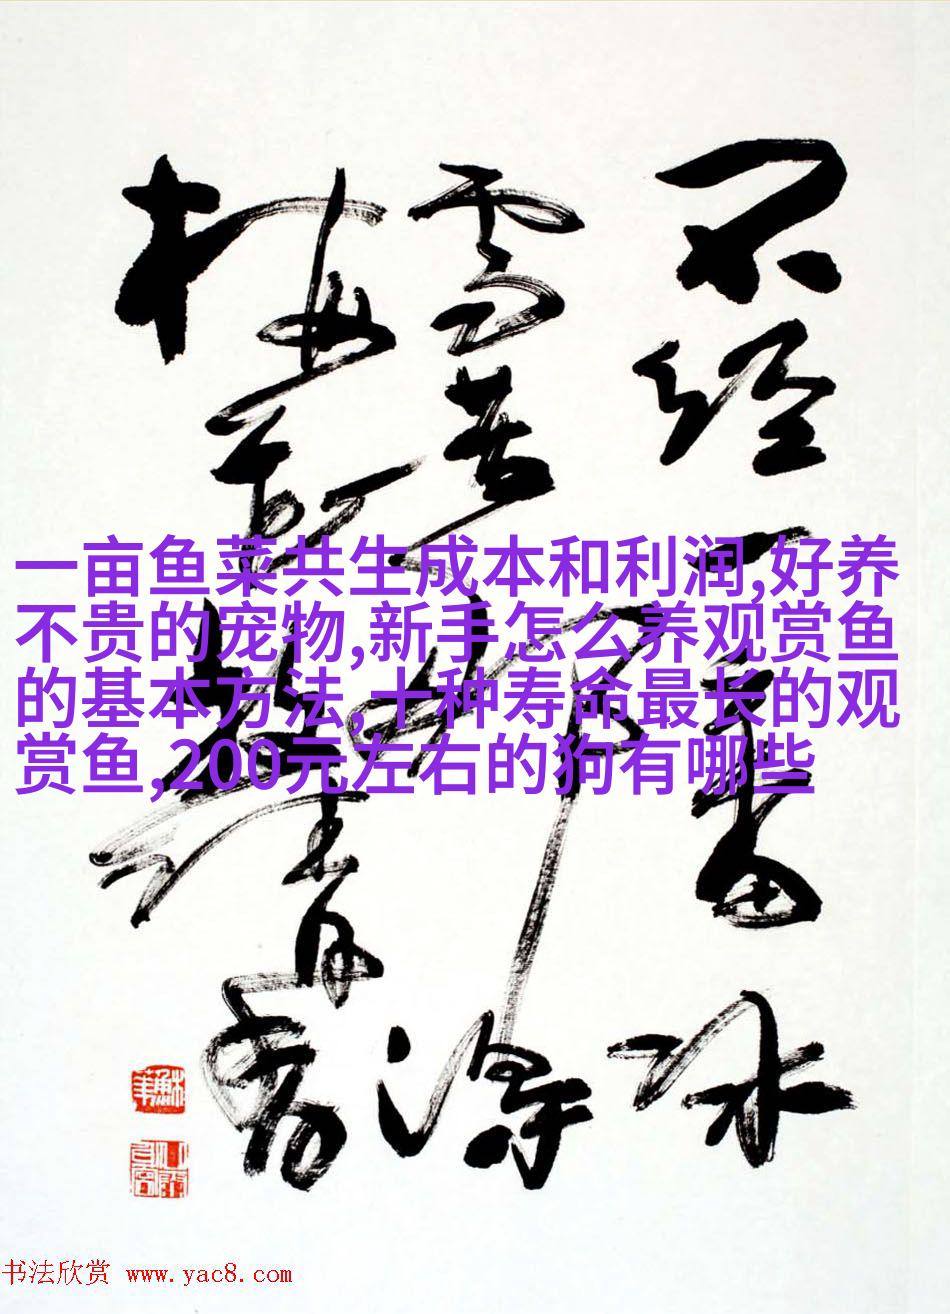 不经一番冰
雪苦那得
梅花放清香
一亩鱼菜共生成本和利润,好养
不贵的宠物,新手怎么养观赏鱼
的基本方法,十种寿命最长的观
赏鱼,200元左右的狗有哪些
书法欣赏 www.yac8.com